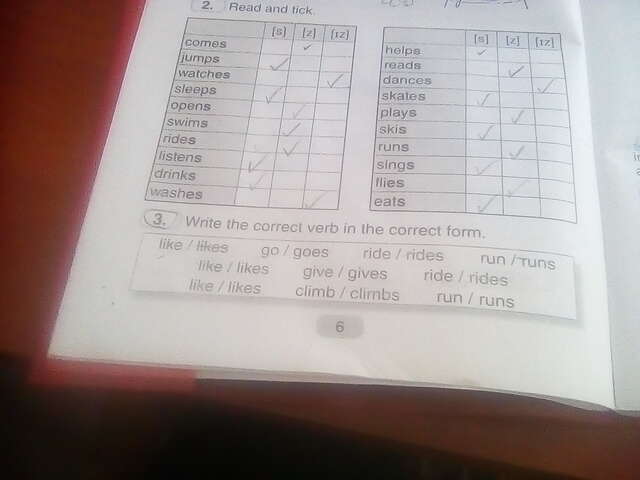 2. Read and tick.
[s] [z] [ɪz]
comes
jumps
watches
sleeps
opens
swims
rides
listens
drinks
washes
[s] [z] [ɪz]
helps
reads
dances
skates
plays
skis
runs
sings
flies
eats
3. Write the correct verb in the correct form.
like / likes go / goes ride / rides run / runs
like / likes give / gives ride / rides
like / likes climb / climbs run / runs
6